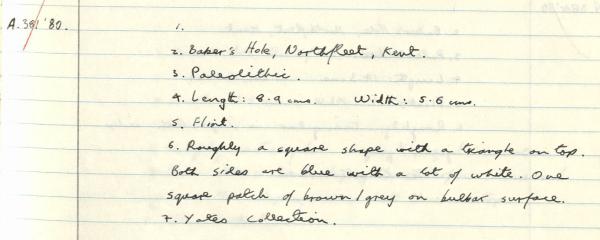 A.381'80. 1.
2. Baker's Hole, Northfleet, Kent.
3. Paleolithic.
4. Length: 8.9 cms. Width: 5.6 cms.
5. Flint.
6. Roughly a square shape with a triangle on top.
Both sides are blue with a lot of white. One
square patch of brown/grey on bulbar surface.
7. Yates Collection.